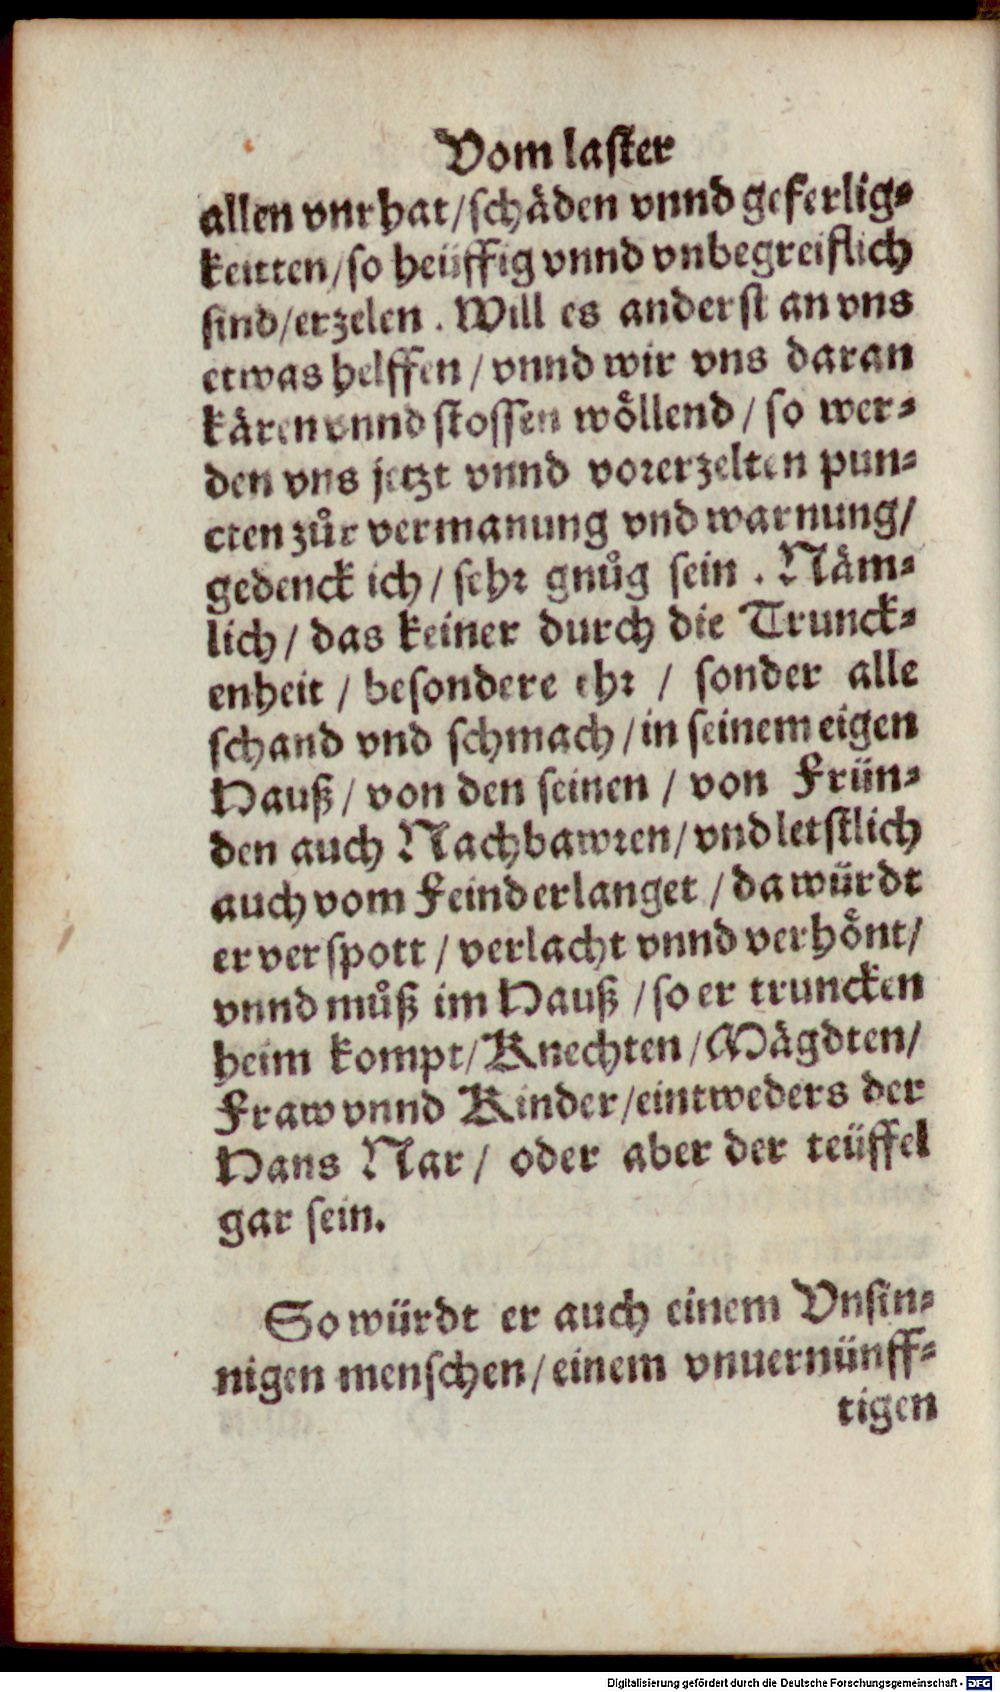 Vom laster
allen vnrhat/schäden vnnd geferlig-
keitten/so heüffig vnnd vnbegreiflich
sind/erzelen. Will es anderst an vns
etwas helffen/vnnd wir vns daran
kären vnnd stossen wöllend/so wer-
den vns jetzt vnnd vorerzelten pun-
cten zůr vermanung vnd warnung/
gedenck ich/sehr gnůg sein. Näm-
lich/das keiner durch die Trunck-
enheit/besondere ehr/sonder alle
schand vnd schmach/in seinem eigen
Hauß/von den seinen/von Frün-
den auch Nachbawren/vnd letstlich
auch vom Feind erlanget/da würdt
er verspott/verlacht vnnd verhönt/
vnnd můß im Hauß/so er truncken
heim kompt/Knechten/Mägdten/
Fraw vnnd Kinder/eintweders der
Hans Nar/oder aber der teüffel
gar sein.
So würdt er auch einem Vnsin-
nigen menschen/einem vnuernünff-
tigen
Digitalisierung gefördert durch die Deutsche Forschungsgemeinschaft - DFG